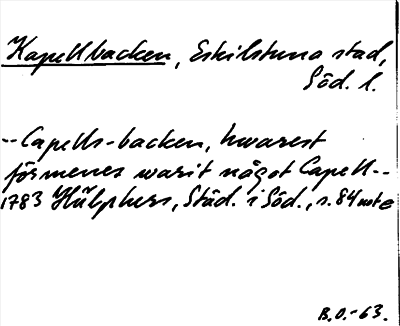 Kapellbacken, Eskilstuna stad,
Söd. l.
-- Capells-backen, hwarest
förmenes warit något Capell --
1783 Hülphers, Städ. i Söd., s. 84 note
B.O.-63.